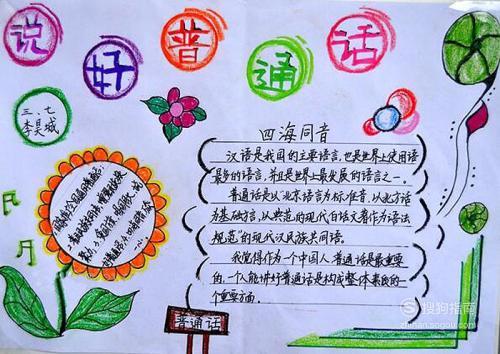 说好普通话
三、七
李昊城
四海同音
汉语是我国的主要语言,也是世界上使用语
最多的语言,并且是世界上最发展的语言之一.
普通话是以北京语言为标准音,以北方话
为基础方言,以典范的现代白话文著作为语法
规范"的现代汉民族共同语。
我觉得作为一个中国人,普通话是最重要
的.一个人能讲好普通话是构成整体素质的一
个重要方面.
普通话
搜狗指南
zhinan.sogou.com